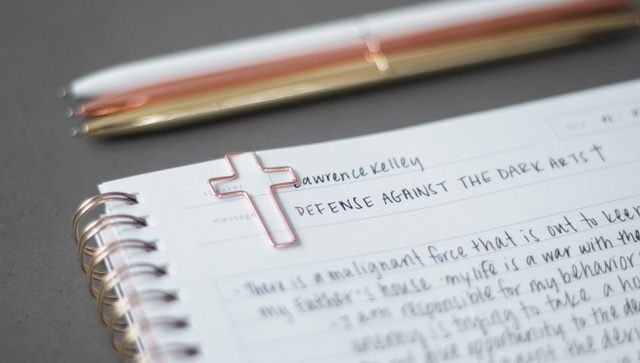 speaker Lawrence Kelley
message DEFENSE AGAINST THE DARK ARTS†
date
- There is a malignant force that is out to keep
my Father's house · my life is a war with the
- I am responsible for my behavior
enemy is trying to take a
give opportunity to the
the